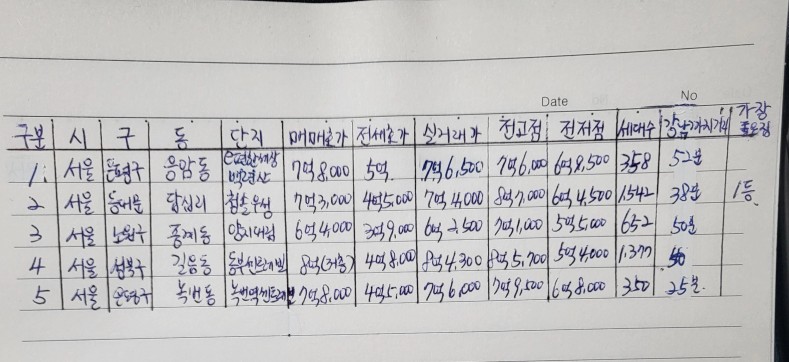 Date No
구분 시 구 동 단지 매매호가 전세호가 실거래가 전고점 전저점 세대수 강남까지거리 가장 좋은점
1. 서울 은평구 응암동 백련산 7억8,000 5억. 7억6,500 7억6,000 6억8,500 358 52분
2 서울 동대문 답십리 청솔우성 7억3,000 4억5,000 7억4,000 8억7,000 6억4,500 1,542 38분 1등
3 서울 노원구 중계동 양지대림 6억4,000 3억9,000 6억2,500 7억1,000 5억5,000 652 50분
4 서울 성북구 길음동 동부센트레빌 8억(저층) 4억8,000 8억4,300 8억5,700 5억4,000 1,377 50
5 서울 은평구 녹번동 녹번역센트레빌 7억8,000 4억5,000 7억6,000 7억9,500 6억8,000 350 25분.